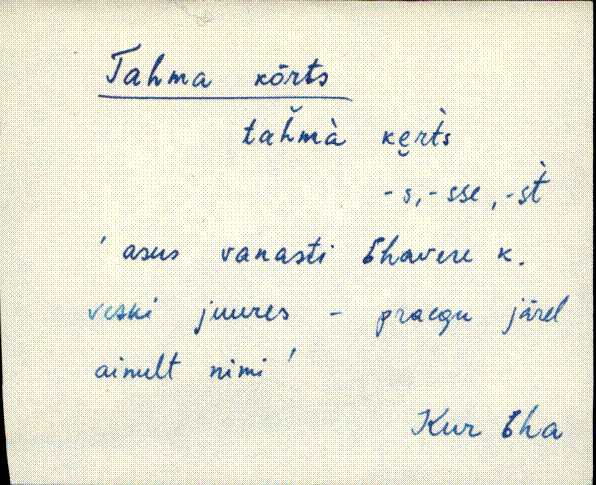 Tahma kõrts
tah̆mà ke̮rt̀s
-s, -sse, -st̀
' asus vanasti Ehavere k.
veski juures - praegu järel
ainult nimi '
Kur Eha